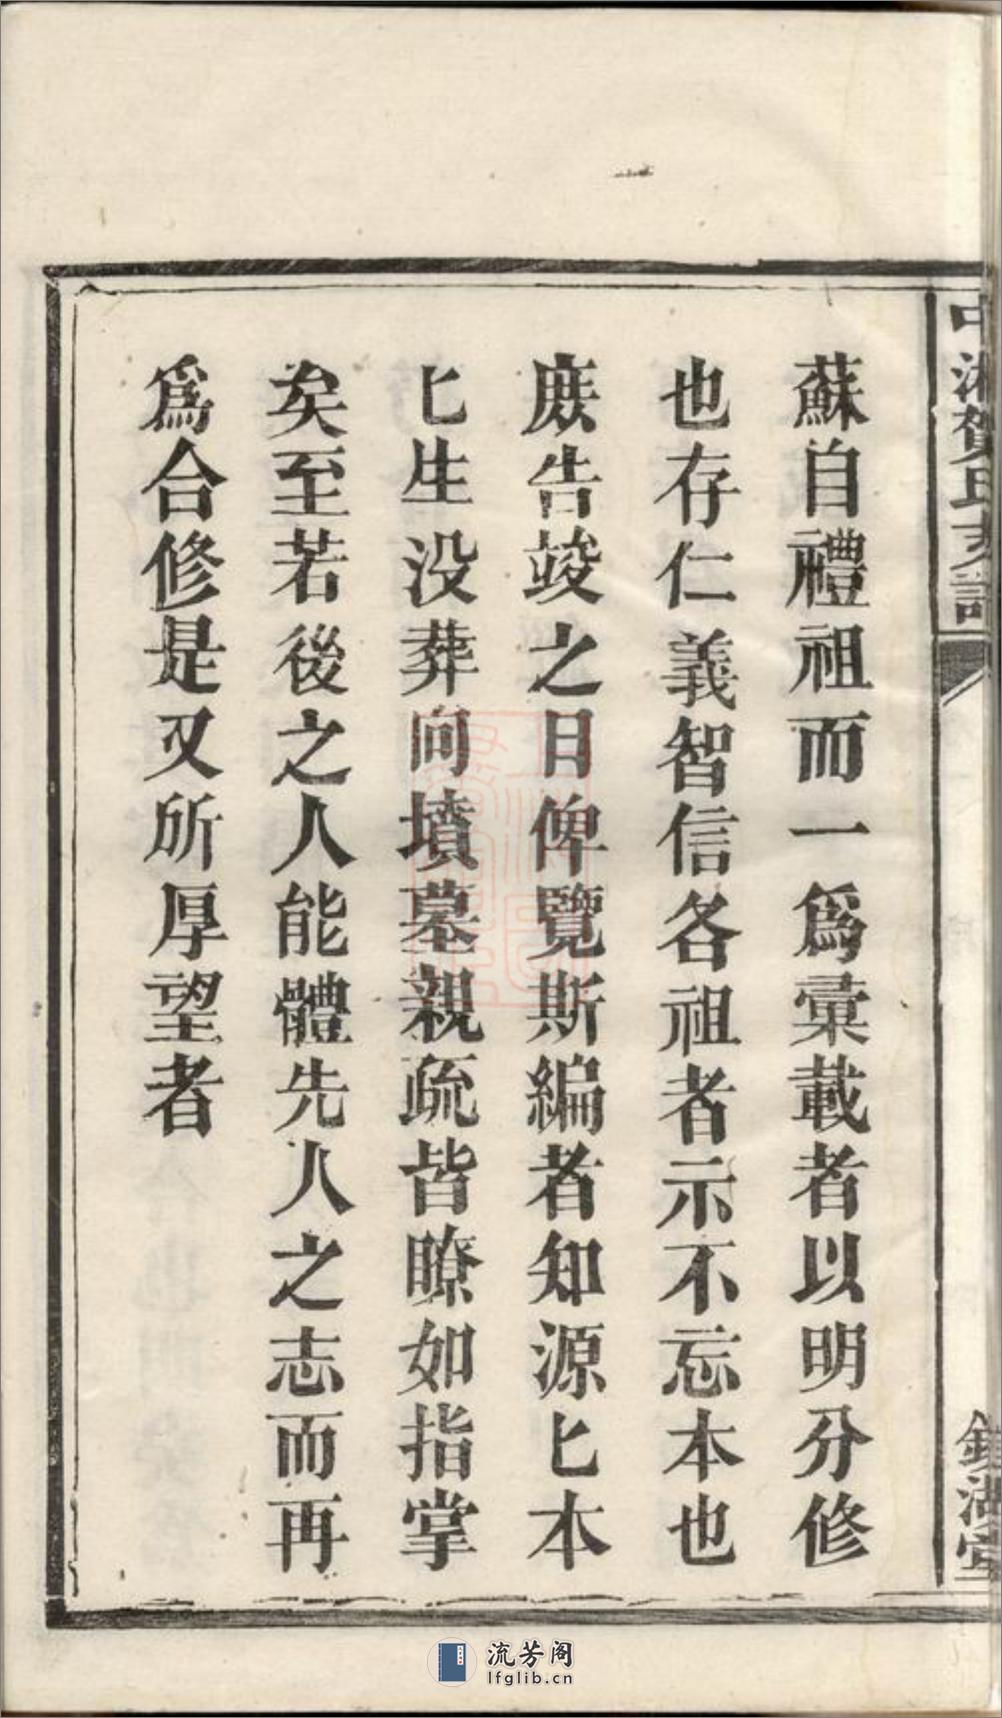 中湘賀氏支譜
鑑湖堂
蘇自禮祖而一為彙載者以明分修
也存仁義智信各祖者示不忘本也
庶告竣之日俾覽斯編者知源匕本
匕生没葬向墳墓親疏皆瞭如指掌
矣至若後之人能體先人之志而再
為合修是又所厚望者
流芳阁
lfglib.cn